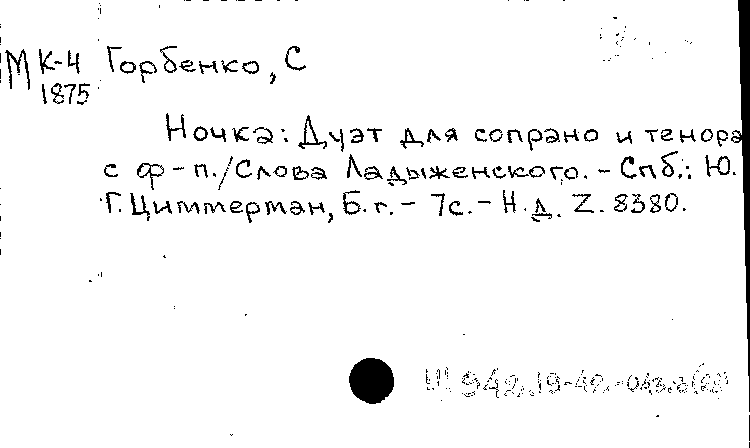 М К-4 Горбенко, С
1875
Ночка: Дуэт для сопрано и тенора
с ф-п./Слова Ладыженского. - Спб.: Ю.
Г. Циммерман, Б.г. - 7с. - Н.д. Z. 8380.
Щ 942.19-42-043.3(28)